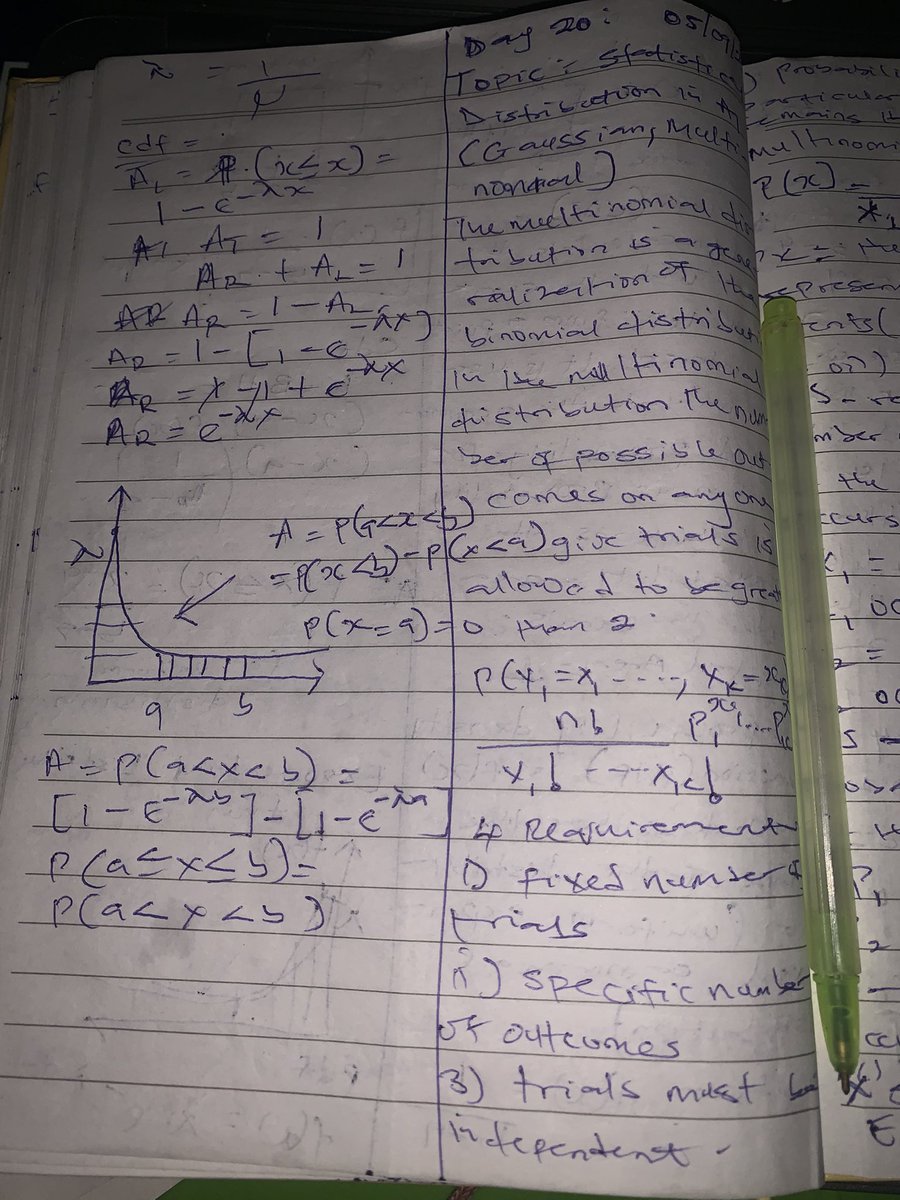 λ = 1/μ
cdf =
A_L = P(x ≤ x) =
1 - e^-λx
A_T = 1
A_R + A_L = 1
A_R = 1 - A_L
A_R = 1 - [1 - e^-λx]
A_R = 1 - 1 + e^-λx
A_R = e^-λx
A = P(a<x<b)
λ
=P(x<b) - P(x<a)
P(x=a) = 0
a b
A = P(a<x<b) =
[1 - e^-λb] - [1 - e^-λa]
P(a≤x≤b) =
P(a<x<b)
Day 20: 05/09/
Topic: Statistics
Distribution in
(Gaussian, Multi
nomial)
The multinomial dis
tribution is a gene
ralization of the
binomial distribut
in the multinomial
distribution the num
ber of possible out
comes on any one
give trials is
allowed to be great
than 2.
P(X_1=x_1 ----, X_k=x_k
n! P_1^x_1....P_k^x
x_1! ---- x_k!
4 Requirement
1) fixed number of
trials
ii) specific number
of outcomes
3) trials must be
independent.
probabili
particular
emains
multinomi
P(x) =
x_1
the
epresen
ents(
S - re
mber
the
ccurs
x_1 =
oc
2 =
P_1
2
E